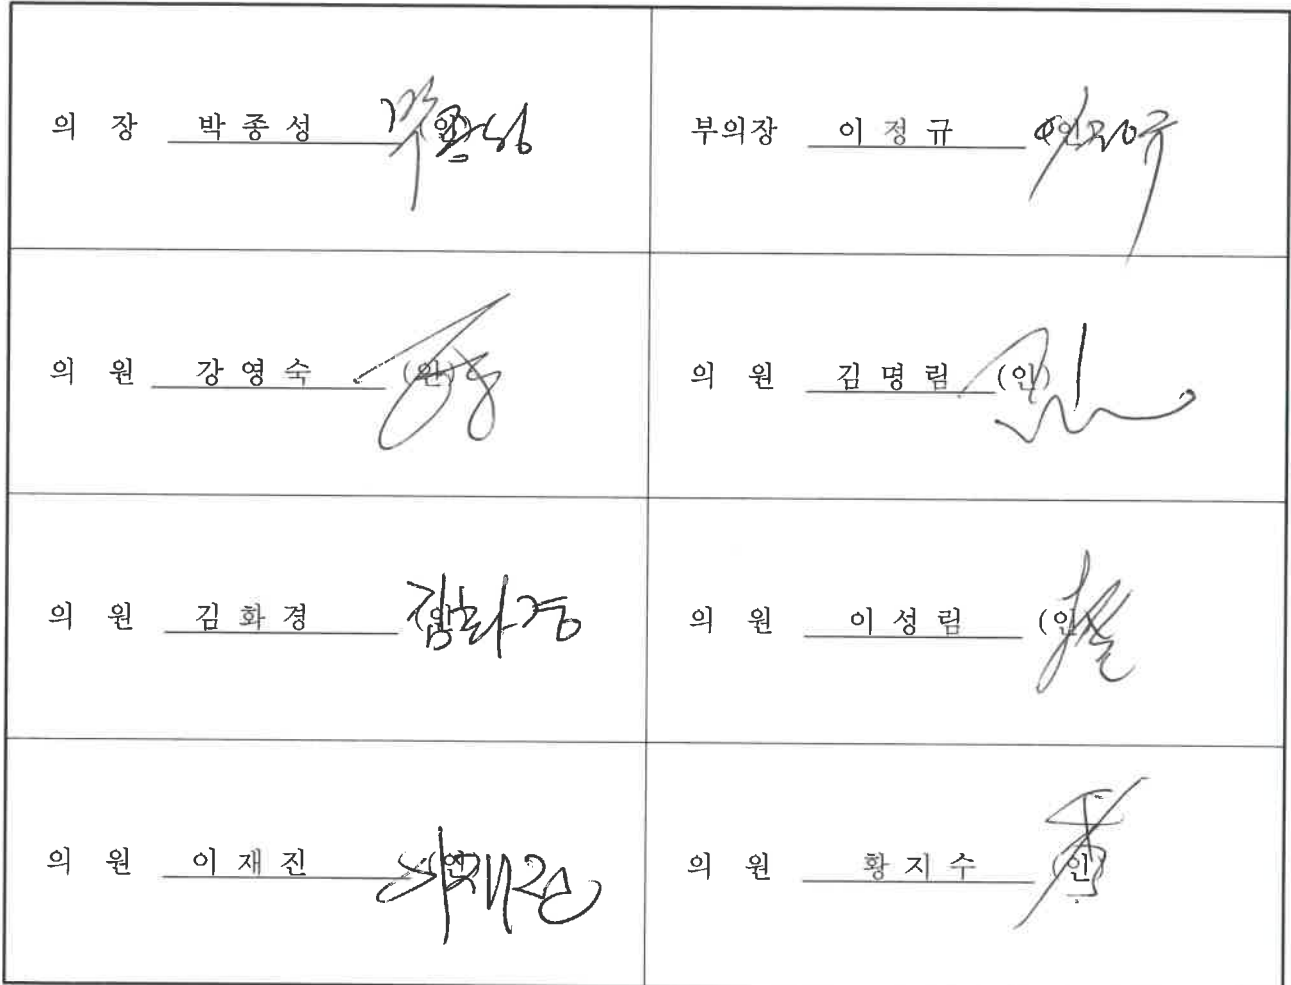 의 장 박 종 성 (인)
부의장 이 정 규 (인)
의 원 강 영 숙 (인)
의 원 김 명 림 (인)
의 원 김 화 경 (인)
의 원 이 성 림 (인)
의 원 이 재 진 (인)
의 원 황 지 수 (인)